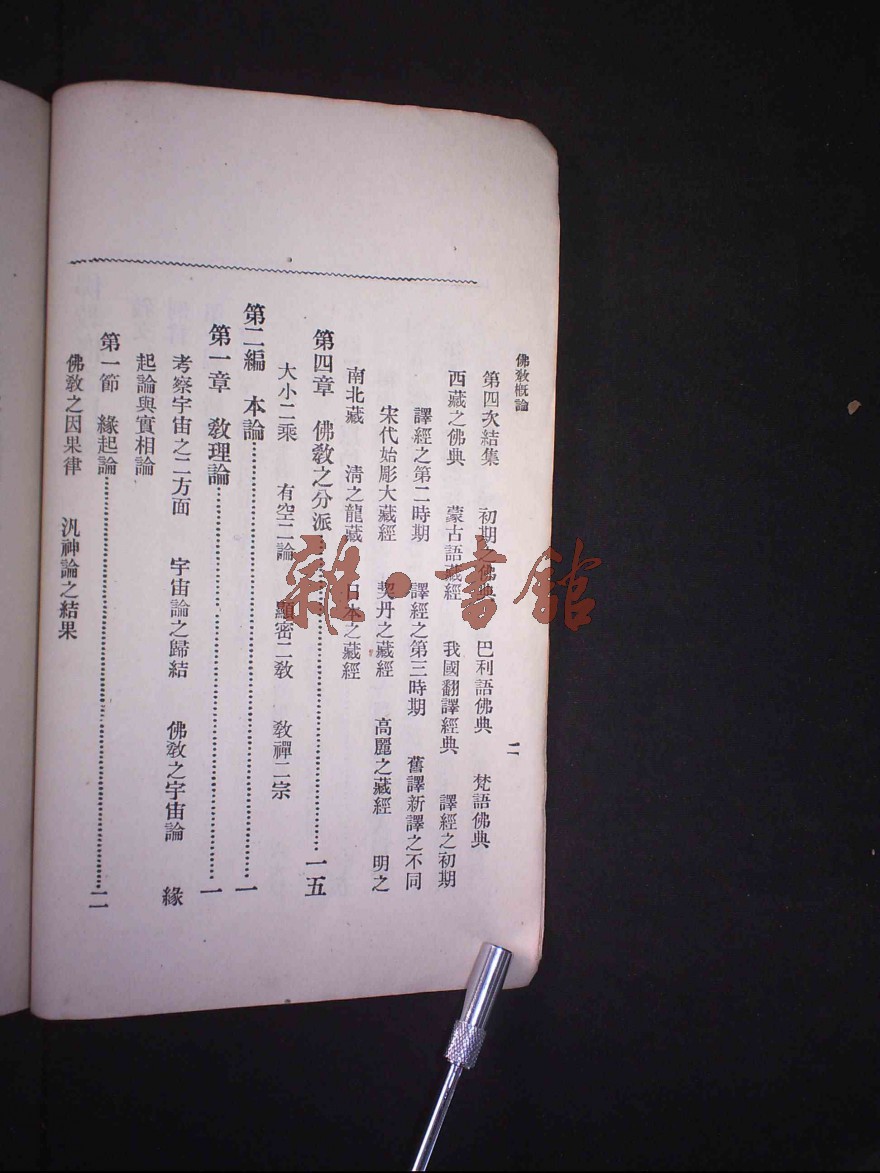 佛教概論
二
第四次結集　初期之佛典　巴利語佛典　梵語佛典
西藏之佛典　蒙古語藏經　我國翻譯經典　譯經之初期
譯經之第二時期　譯經之第三時期　舊譯新譯之不同
宋代始彫大藏經　契丹之藏經　高麗之藏經　明之
南北藏　清之龍藏　日本之藏經
第四章　佛敎之分派……一五
大小二乘　有空二論　顯密二敎　敎禪二宗
第二編　本論……一
第一章　敎理論……一
考察宇宙之二方面　宇宙論之歸結　佛敎之宇宙論　緣
起論與實相論
第一節　緣起論……二
佛敎之因果律　汎神論之結果
雜·書館